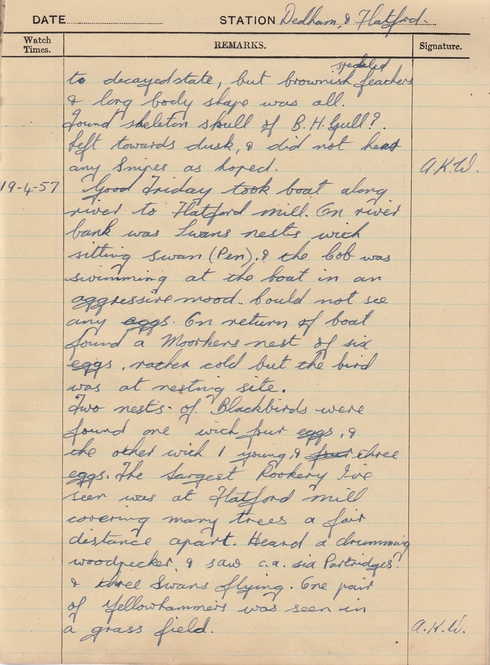 DATE STATION Dedham, & Flatford.
Watch Times. REMARKS. Signature.
speckled
to decayed state, but brownish feathers
& long body shape was all.
Found skeleton skull of B.H. Gull?
Left towards dusk, & did not hear
any Snipes as hoped. A.K.W.
19-4-57 Good Friday took boat along
river to Flatford Mill. On river
bank was Swans nests with
sitting swan (Pen), & the Cob was
swimming at the boat in an
aggressive mood. Could not see
any eggs. On return of boat
found a Moorhens nest of six
eggs, rather cold but the bird
was at nesting site.
Two nests of Blackbirds were
found one with four eggs, &
the other with 1 young, & four three
eggs. The Largest Rookery I've
seen was at Flatford Mill
covering many trees a fair
distance apart. Heard a drumming
woodpecker, & saw c.a. six Partridges.
& three Swans flying. One pair
of Yellowhammers was seen in
a grass field. A.K.W.